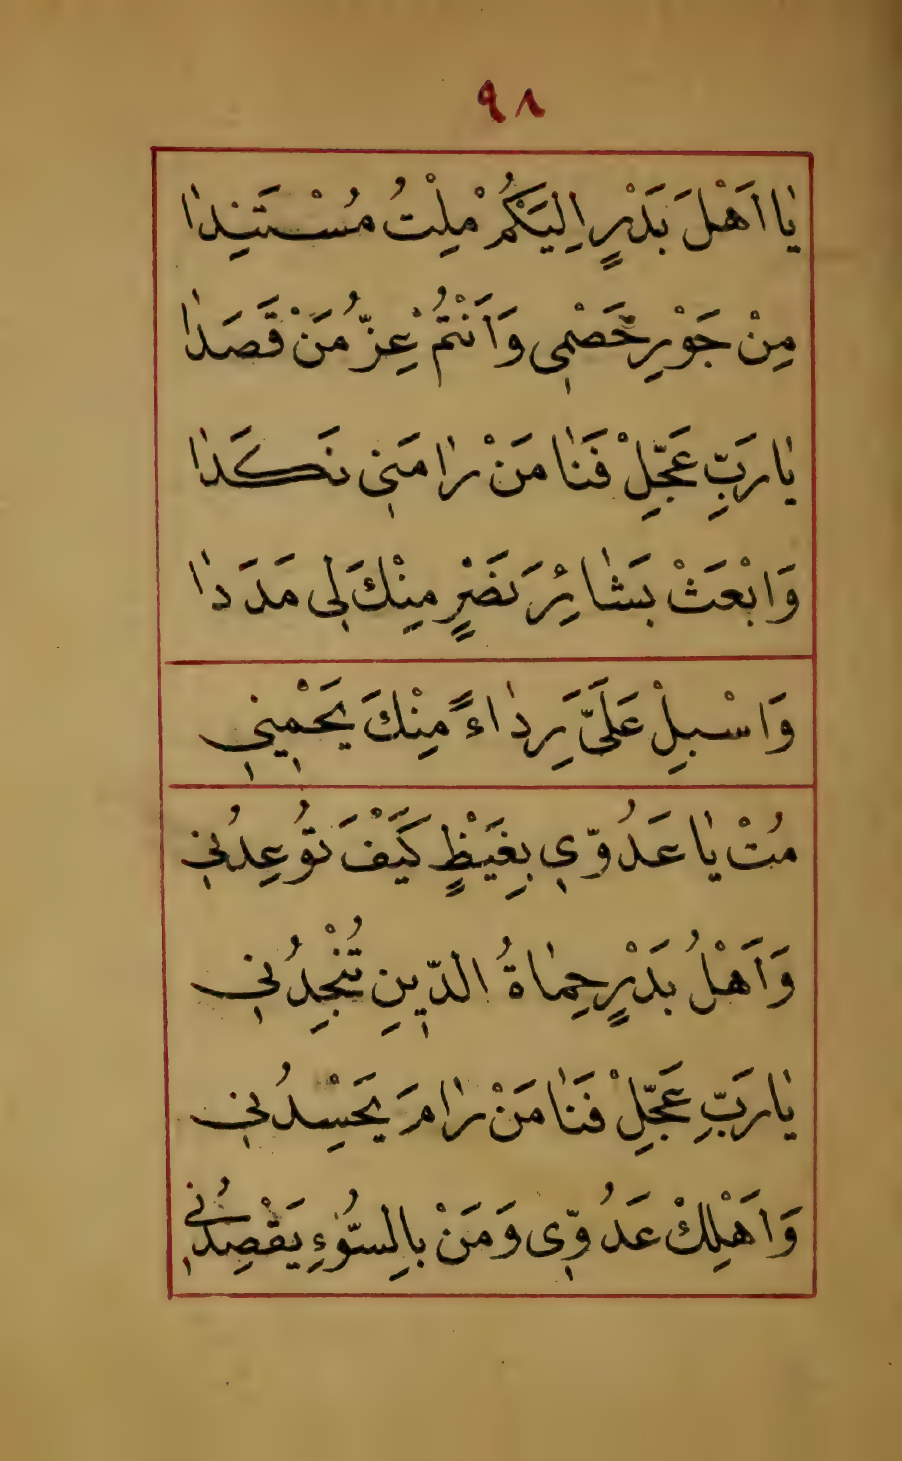 ٩٨
يَا اَهْلَ بَدْرٍ اِلَيْكُمْ مِلْتُ مُسْتَنِدًا
مِنْ جَوْرِ خَصْمِي وَاَنْتُمْ عِزُّ مَنْ قَصَدَا
يَا رَبِّ عَجِّلْ فَنَا مَنْ رَامَنِي نَكَدَا
وَابْعَثْ بَشَائِرَ نَصْرٍ مِنْكَ لِي مَدَدَا
وَاسْبِلْ عَلَيَّ رِدَاءً مِنْكَ يَحْمِينِي
مُتْ يَا عَدُوِّي بِغَيْظٍ كَيْفَ تُوعِدُنِي
وَاَهْلُ بَدْرٍ حِمَاةُ الدِّينِ تُنْجِدُنِي
يَا رَبِّ عَجِّلْ فَنَا مَنْ رَامَ يَحْسِدُنِي
وَاَهْلِكْ عَدُوِّي وَمَنْ بِالسُّوءِ يَقْصِدُنِي